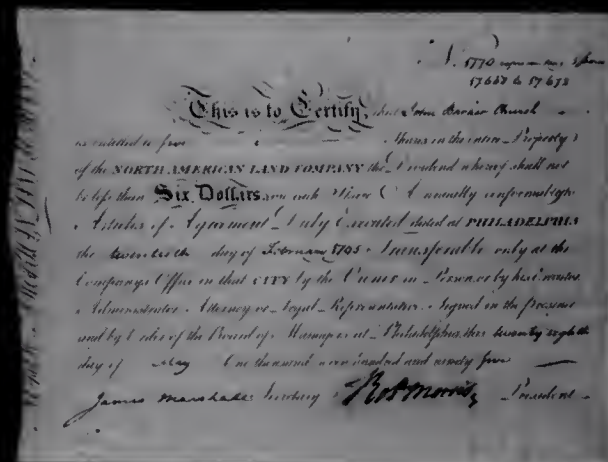 No. 5770
57667 to 57672
This is to Certify, that John Barker Church
is entitled to five Shares in the entire Property
of the NORTH AMERICAN LAND COMPANY the Dividend whereof shall not
be less than Six Dollars on each Share Annually conformably to
Articles of Agreement Duly Executed dated at PHILADELPHIA
the twentieth day of February 1795 Transferable only at the
Companys Office in that CITY by the Owner in Person or by his Executor
Administrator Attorney or Legal Representative Signed in the presence
and by Order of the Board of Managers at Philadelphia this twenty eighth
day of May One thousand seven hundred and ninety five
James Marshall Secretary Robt Morris President